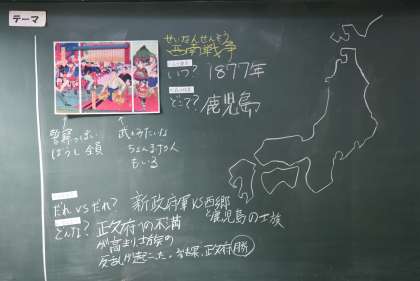 テーマ
せいなんせんそう
西南戦争
いつ? 1877年
どこで? 鹿児島
警察っぽい
ぼうし全員
武士みたいな
ちょんまげの人
もいる
だれvsだれ? 新政府軍VS西郷
と鹿児島の士族
どんな? 政府への不満
が高まり士族の
反乱が起こった。結果、政府勝